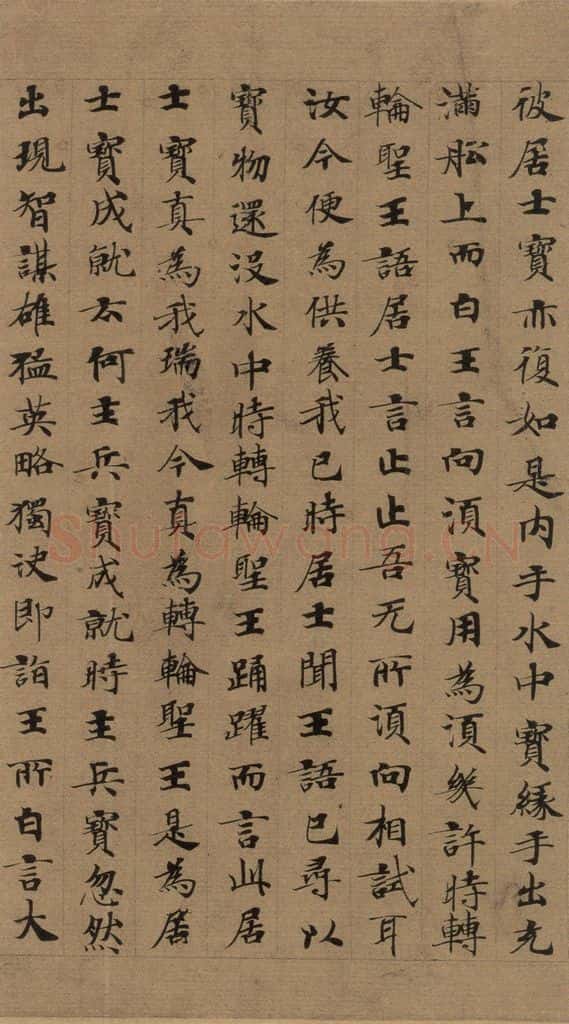 彼居士寶亦復如是內手水中寶緣手出充
滿舩上而白王言向湏寶用為湏幾許時轉
輪聖王語居士言止止吾无所湏向相試耳
汝今便為供養我已時居士聞王語已尋以
寶物還沒水中時轉輪聖王踊躍而言此居
士寶真為我瑞我今真為轉輪聖王是為居
士寶成就云何主兵寶成就時主兵寶忽然
出現智謀雄猛英略獨决即詣王所白言大
Shufawang.CN